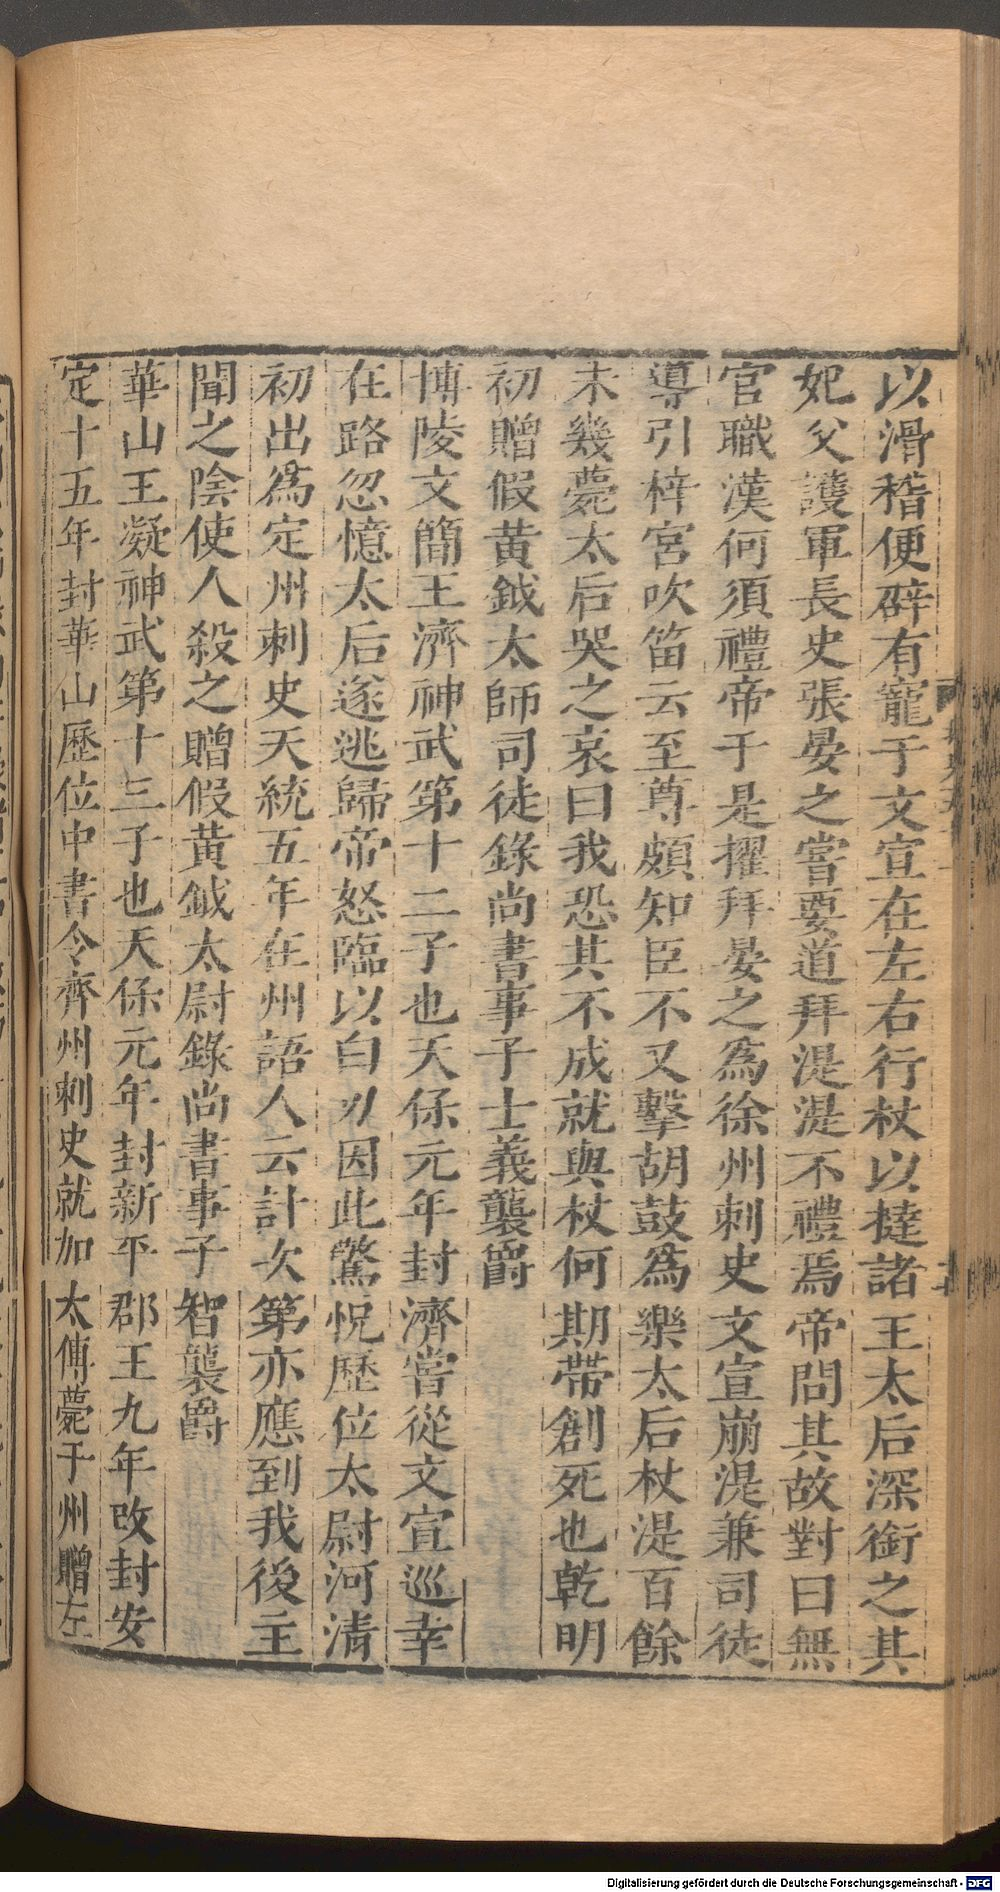 以滑稽便辟有寵于文宣在左右行杖以撻諸王太后深銜之其
妃父護軍長史張晏之嘗要道拜湜湜不禮焉帝問其故對曰無
官職漢何須禮帝于是擢拜晏之爲徐州刺史文宣崩湜兼司徒
導引梓宮吹笛云至尊頗知臣不又擊胡鼓爲樂太后杖湜百餘
未幾薨太后哭之哀曰我恐其不成就與杖何期帶創死也乾明
初贈假黃鉞太師司徒錄尚書事子士義襲爵
博陵文簡王濟神武第十二子也天保元年封濟嘗從文宣巡幸
在路忽憶太后遂逃歸帝怒臨以白刃因此驚怳歷位太尉河清
初出爲定州刺史天統五年在州語人云計次第亦應到我後主
聞之陰使人殺之贈假黃鉞太尉錄尚書事子智襲爵
華山王凝神武第十三子也天保元年封新平郡王九年改封安
定十五年封華山歷位中書令齊州刺史就加太傅薨于州贈左
Digitalisierung gefördert durch die Deutsche Forschungsgemeinschaft - DFG